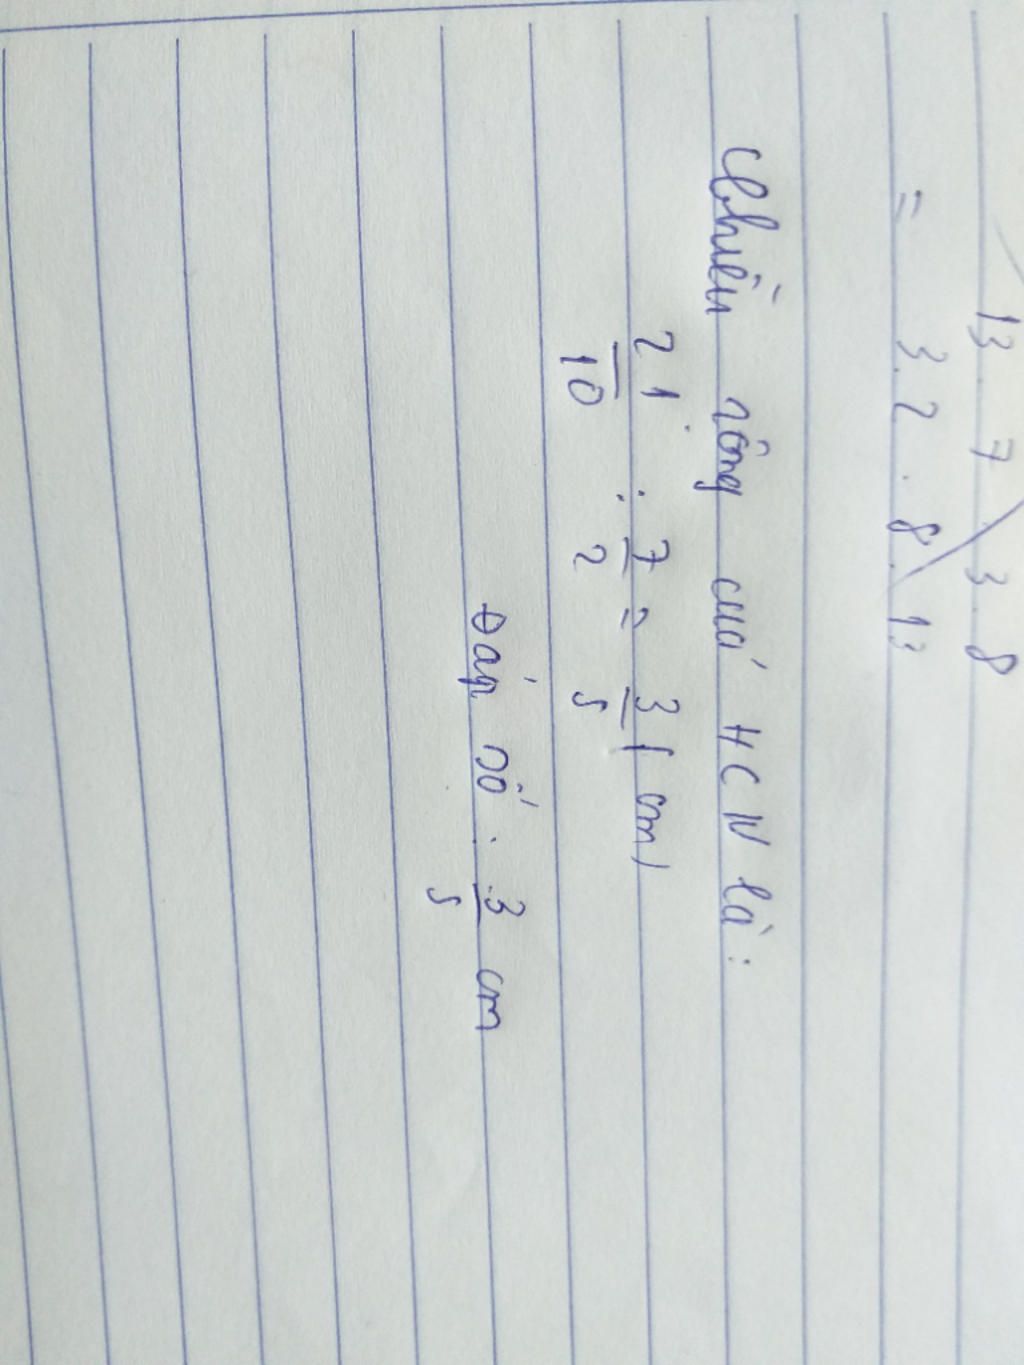 13 7 3 8
= 3.2.8.13
Chiều rông cuả HCN là:
21/10 : 7/2 = 3/5 (cm)
Đáp số: 3/5 cm